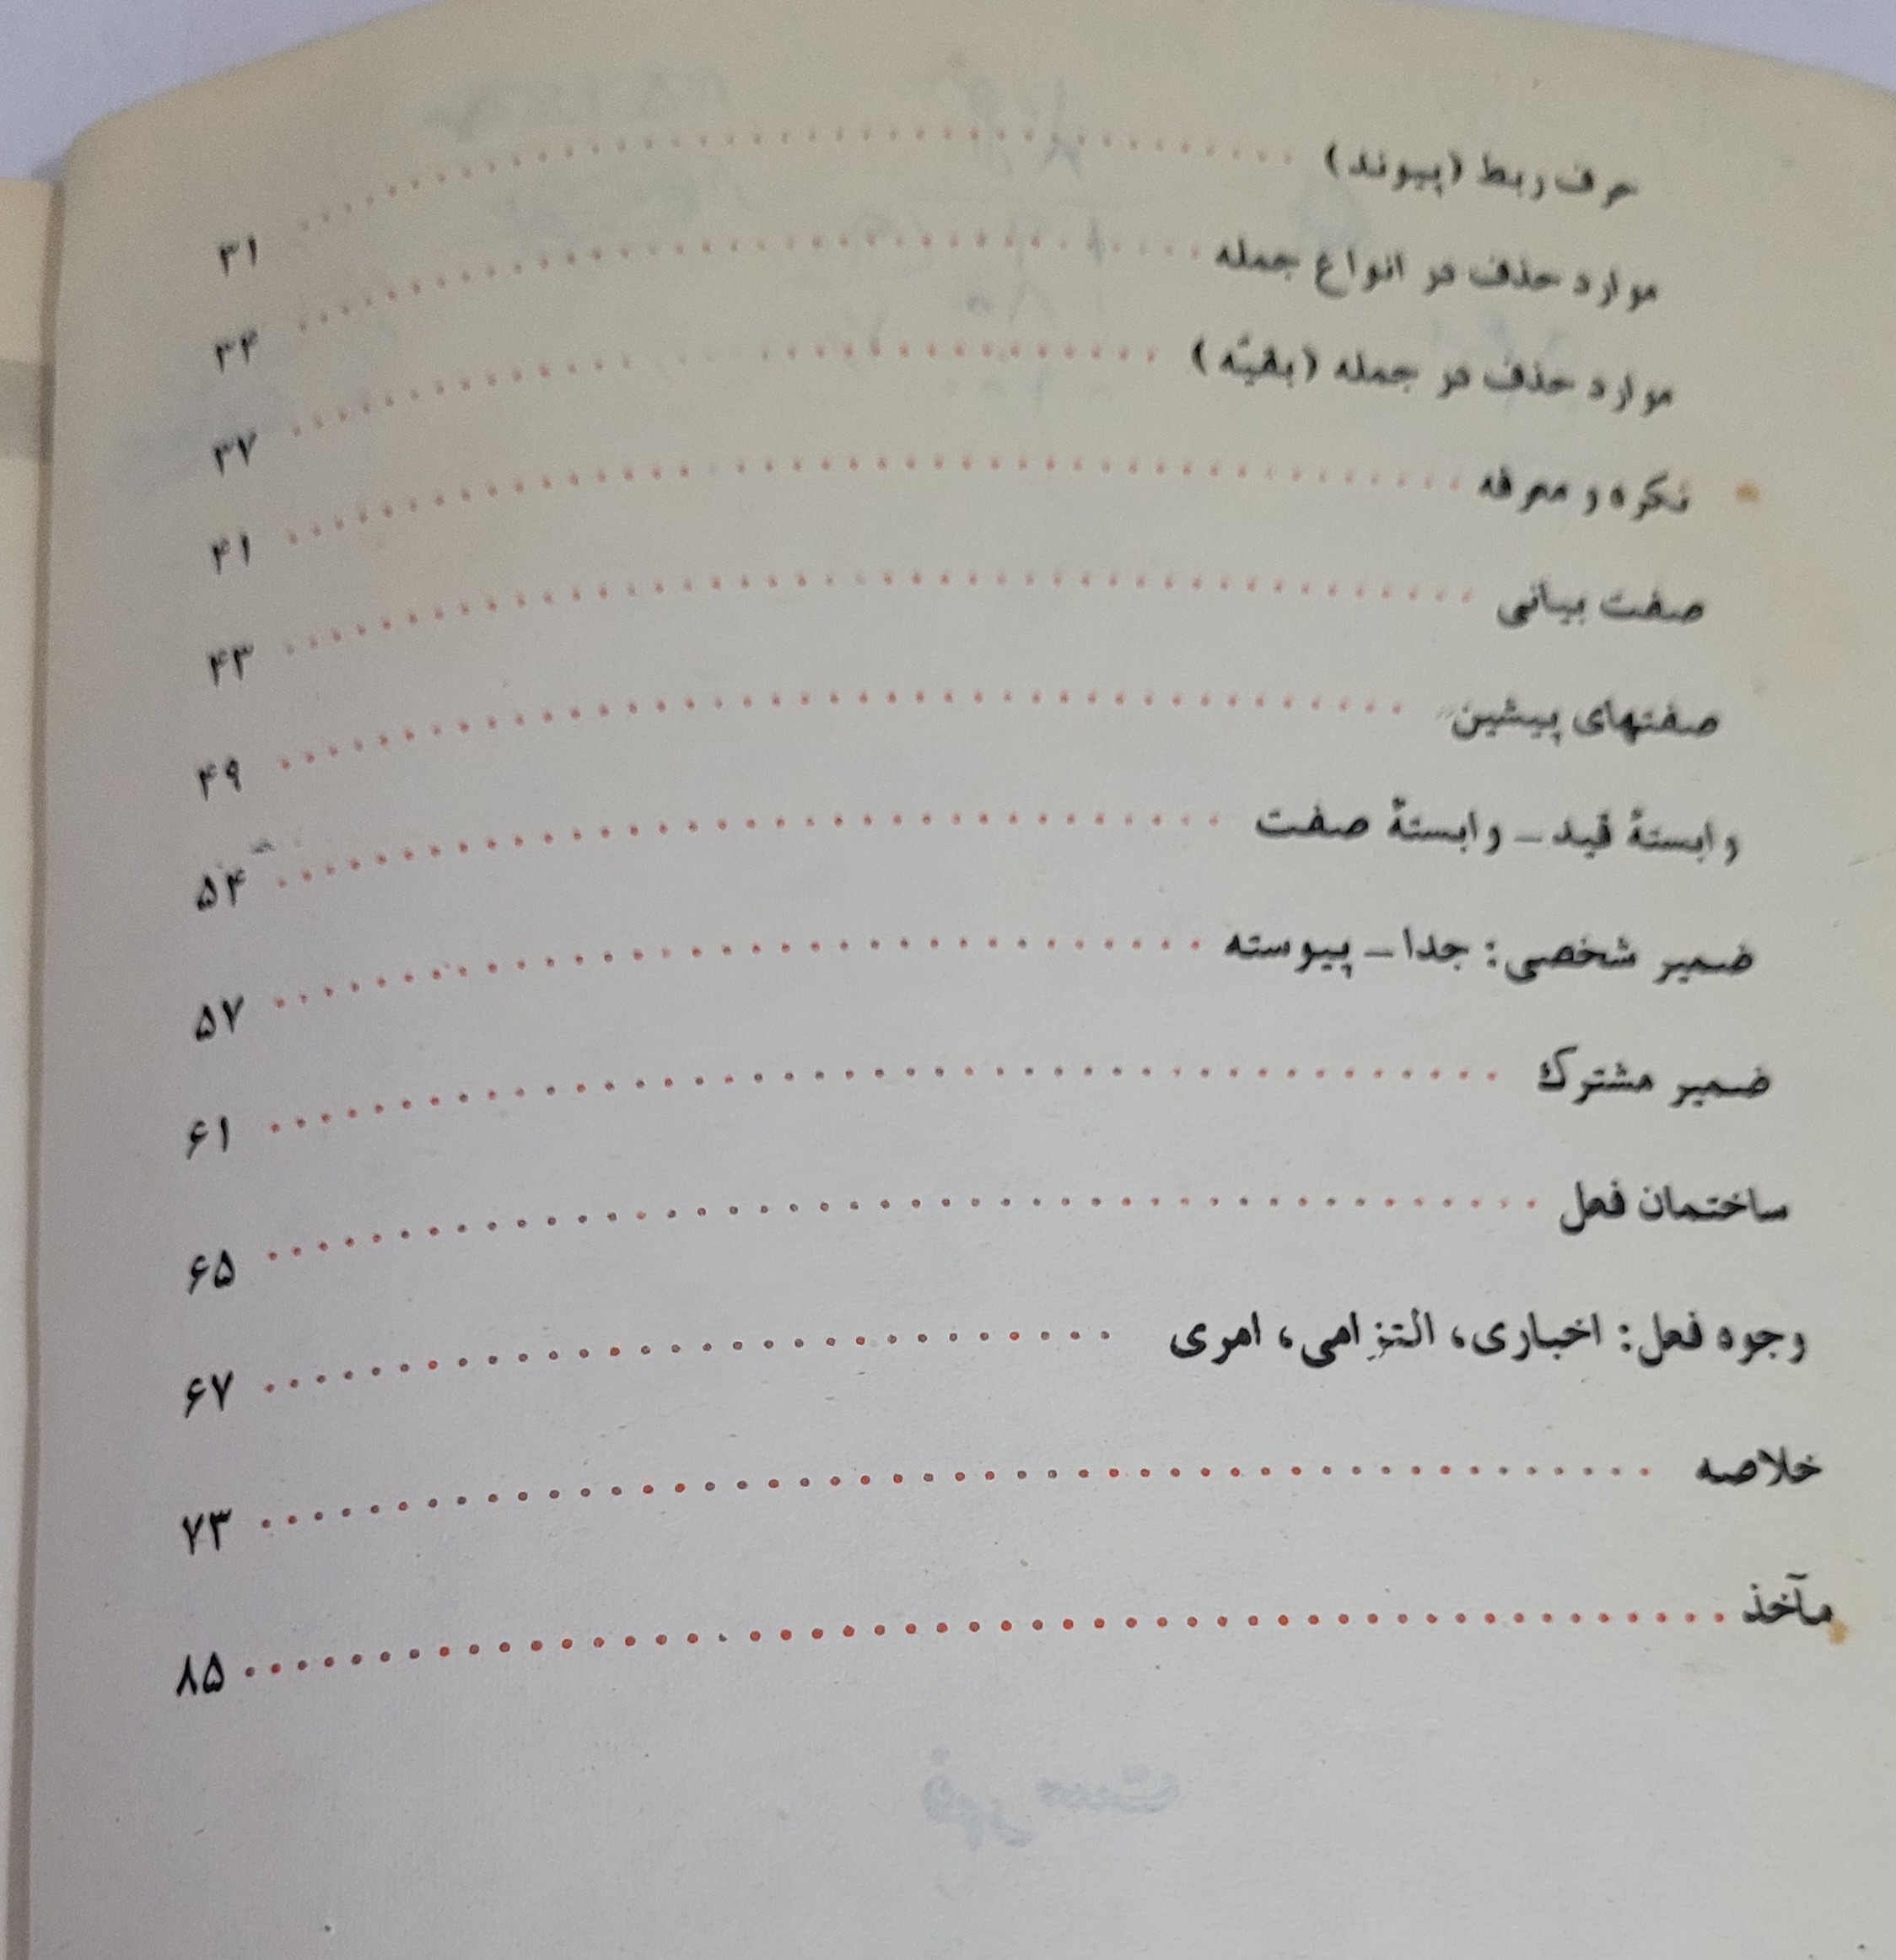 حرف ربط (پیوند) ........ ۳۱
موارد حذف در انواع جمله ........ ۳۴
موارد حذف در جمله (بقیّه) ........ ۳۷
نکره و معرفه ........ ۴۱
صفت بیانی ........ ۴۳
صفتهای پیشین ........ ۴۹
وابستهٔ قید ــ وابستهٔ صفت ........ ۵۴
ضمیر شخصی: جدا ــ پیوسته ........ ۵۷
ضمیر مشترک ........ ۶۱
ساختمان فعل ........ ۶۵
وجوه فعل: اخباری، التزامی، امری ........ ۶۷
خلاصه ........ ۷۳
مآخذ ........ ۸۵